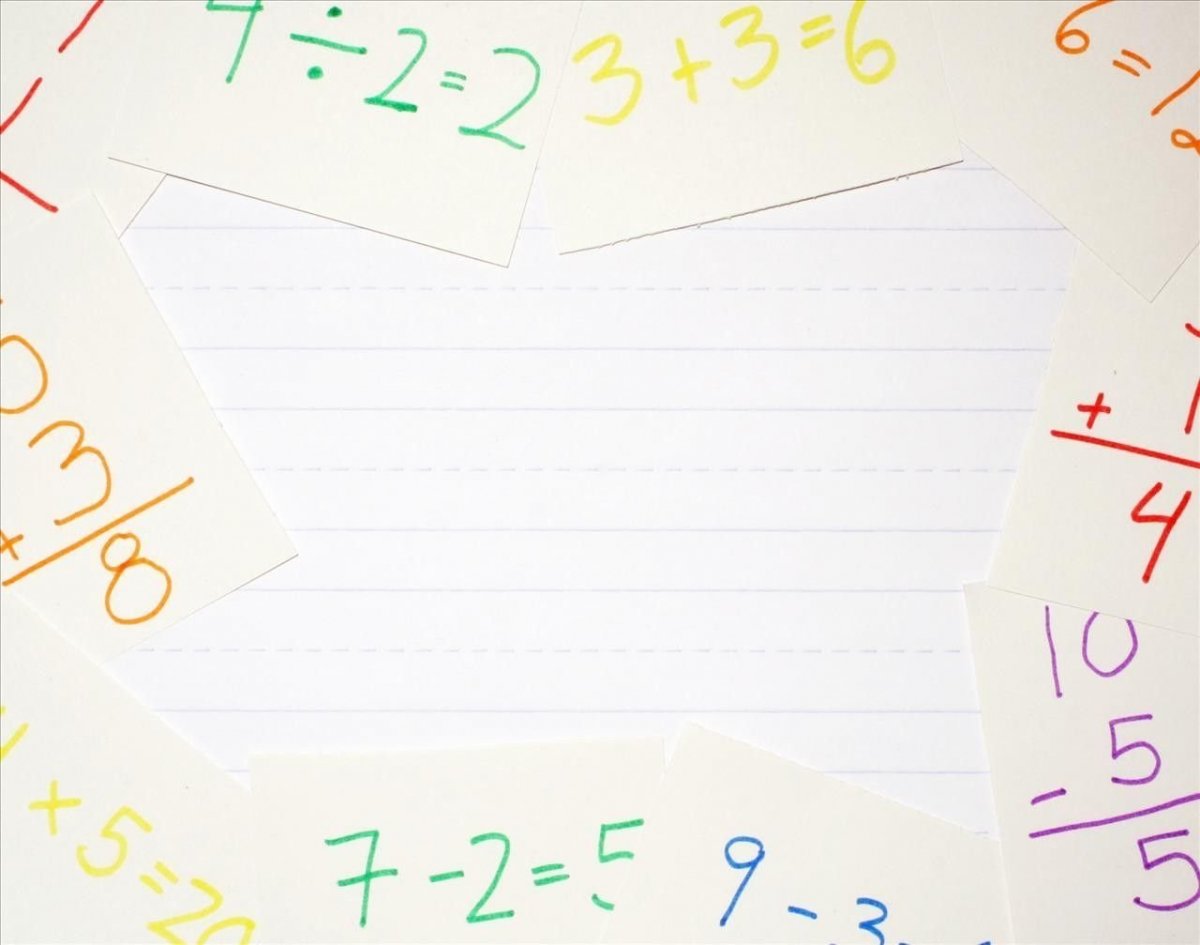 4÷2=2
3+3=6
6=12
+ 1
4
3
+
8
10
- 5
5
+5=20
7-2=5
9-3